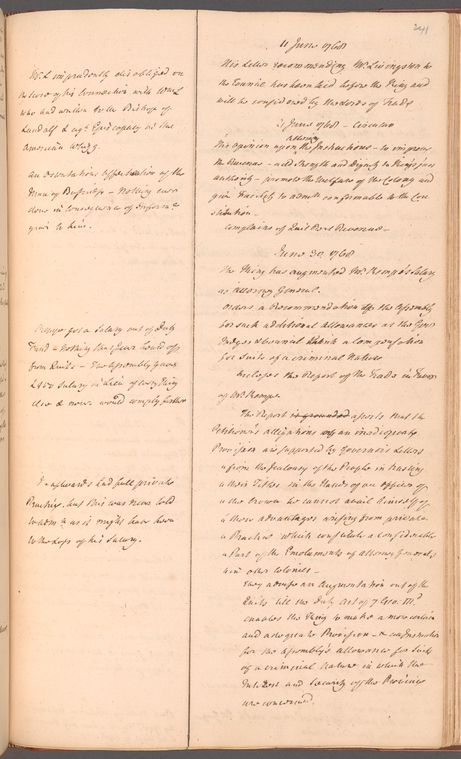 241
11 June 1768
His Letter recommending Mr. Livingston to
the Council has been laid before the King and
will be considered by the Lords of Trade
Mr. L imprudently disobliged on
the score of his connection with
who had written to the Bishop of
Landaff & agt. Episcopacy in the
American Whig.
21 June 1768 - Circular
attorney
His opinion upon the Instructions - to improve
the Revenue - add Strength and Dignity to
authority - promote the Welfare of the Colony and
give Facility to admit conformable to the Con
stitution.
Complains of Quit Rent Revenue -
an Ostentatious of the
Planning Business - Nothing ever
done in Consequence of
given to him.
June 30 1768
The King has augmented Mr. Kempe's Salary
as Attorney General.
Orders a Recommendation to the Assembly
for such additional Allowances as the Govr
Judges & Council think a Compensation
for Suits of a criminal Nature
incloses the Report of the Trade in Favor
of Mr. Kempe.
Prayer for a Salary out of Duty
Fund - Nothing they fear could off
from Quits - The Assembly gave
£150 Salary in Lieu of every Thing
else & never would comply further
The Report is grounded asserts that the
Petitioner's allegations of an inadequate
Provision are supported by Governor's Letters
& from the Jealousy of the People in trusting
" their Titles in the Hands of an Officer of
" the Crown he cannot avail himself of
" those advantages arising from private
" Practice which constitute a considerable
" Part of the Emoluments of attorney Generals
" in other Colonies -
I afterwards had full private
Practice, but this was never told
as it might have been
to the Loss of his Salary.
They advise an Augmentation out of the
Quits till the Duty Act of 7 Geo. IIId
enables the King to make a more certain
and adequate Provision - & an Instruction
for the Assembly's allowance for Suits
of a criminal Nature in which the
Interest and Security of the Province
are concerned.